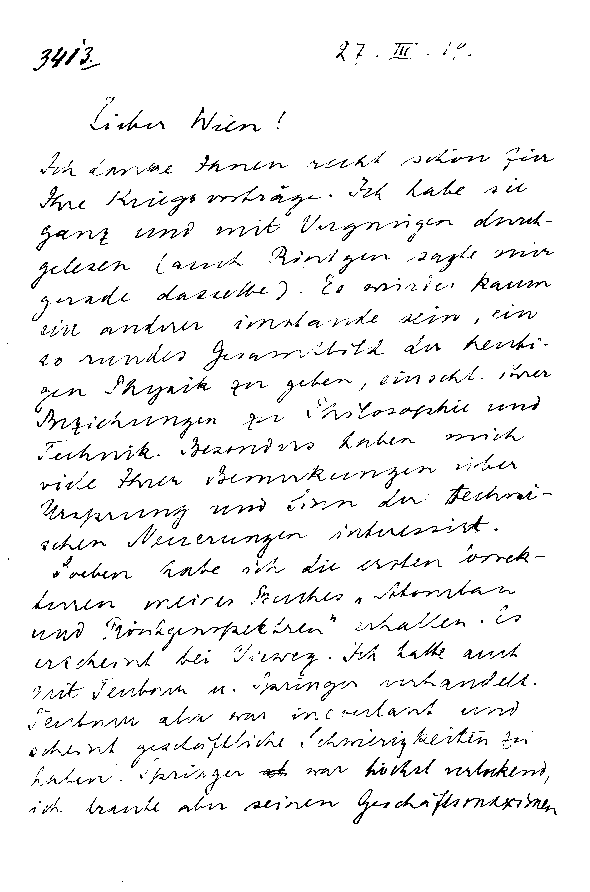 3413.
27. III. 19.
Lieber Wien!
Ich danke Ihnen recht schön für
Ihre Kriegsvorträge. Ich habe sie
ganz und mit Vergnügen durch-
gelesen (auch Röntgen sagte mir
gerade dasselbe). Es würde kaum
ein anderer imstande sein, ein
so rundes Gesamtbild der heuti-
gen Physik zu geben, einschl. ihrer
Beziehungen zu Philosophie und
Technik. Besonders haben mich
viele Ihrer Bemerkungen über
Ursprung und Sinn der techni-
schen Neuerungen interessirt.
Soeben habe ich die ersten Correk-
turen meines Buches „Atombau
und Röntgenspektren“ erhalten. Es
erscheint bei Vieweg. Ich hatte auch
mit Teubner u. Springer verhandelt.
Teubner aber war incoulant und
scheint geschäftliche Schwierigkeiten zu
haben. Springer war höchst verlockend,
ich traute aber seinen Geschäftsmaximen